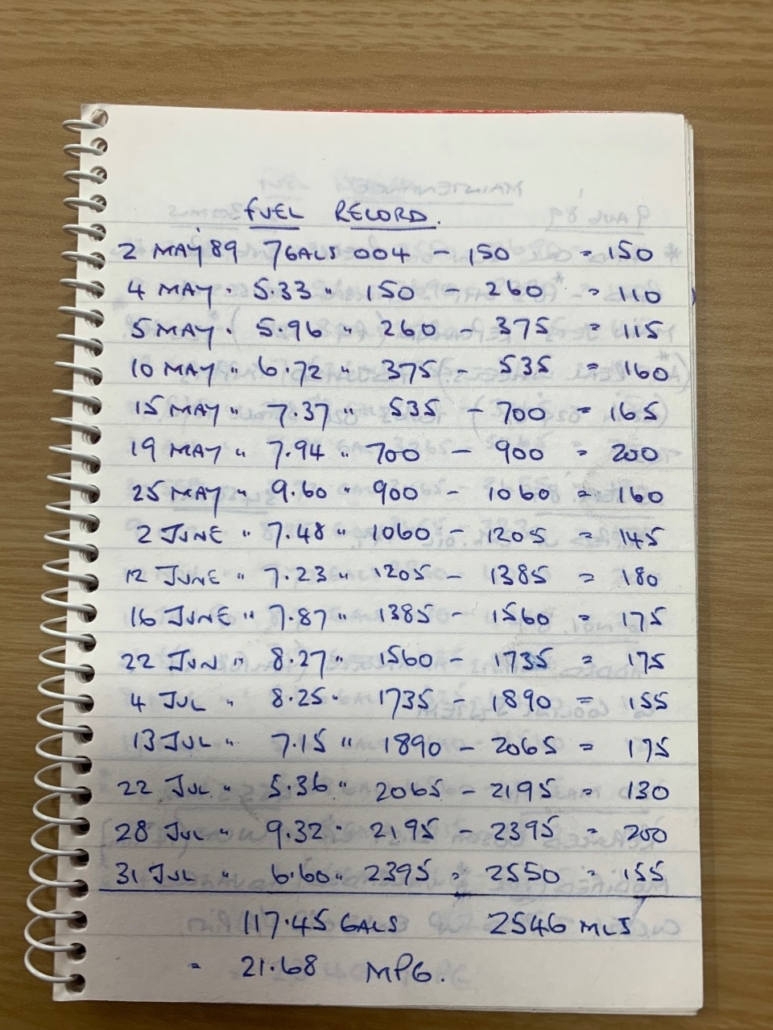 FUEL RECORD.
2 MAY 89 7 GALS 004 - 150 = 150
4 MAY " 5.33 " 150 - 260 = 110
5 MAY " 5.96 " 260 - 375 = 115
10 MAY " 6.72 " 375 - 535 = 160
15 MAY " 7.37 " 535 - 700 = 165
19 MAY " 7.94 " 700 - 900 = 200
25 MAY " 9.60 " 900 - 1060 = 160
2 JUNE " 7.48 " 1060 - 1205 = 145
12 JUNE " 7.23 " 1205 - 1385 = 180
16 JUNE " 7.87 " 1385 - 1560 = 175
22 JUN " 8.27 " 1560 - 1735 = 175
4 JUL " 8.25 " 1735 - 1890 = 155
13 JUL " 7.15 " 1890 - 2065 = 175
22 JUL " 5.36 " 2065 - 2195 = 130
28 JUL " 9.32 " 2195 - 2395 = 200
31 JUL " 6.60 " 2395 = 2550 = 155
117.45 GALS 2546 MLS
= 21.68 MPG.